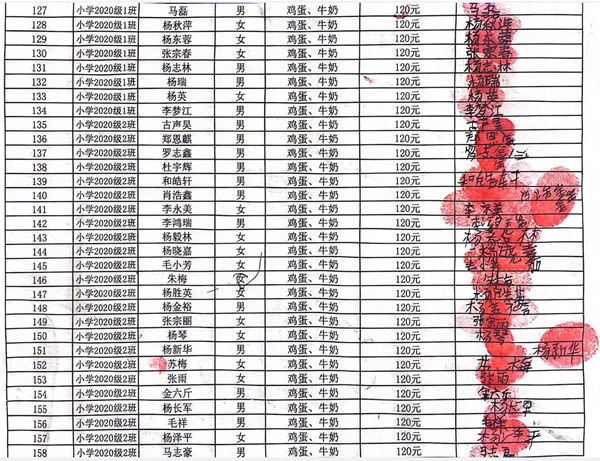 127 小学2020级1班 马磊 男 鸡蛋、牛奶 120元
128 小学2020级1班 杨秋萍 女 鸡蛋、牛奶 120元
129 小学2020级1班 杨东蓉 女 鸡蛋、牛奶 120元
130 小学2020级1班 张宗春 女 鸡蛋、牛奶 120元
131 小学2020级1班 杨志林 男 鸡蛋、牛奶 120元 杨志林
132 小学2020级1班 杨瑞 男 鸡蛋、牛奶 120元 杨瑞
133 小学2020级1班 杨英 女 鸡蛋、牛奶 120元
134 小学2020级1班 李梦江 男 鸡蛋、牛奶 120元 李梦江
135 小学2020级2班 古声昊 男 鸡蛋、牛奶 120元
136 小学2020级2班 郑恩麒 男 鸡蛋、牛奶 120元
137 小学2020级2班 罗志鑫 男 鸡蛋、牛奶 120元
138 小学2020级2班 杜宇辉 男 鸡蛋、牛奶 120元
139 小学2020级2班 和皓轩 男 鸡蛋、牛奶 120元
140 小学2020级2班 肖浩鑫 男 鸡蛋、牛奶 120元
141 小学2020级2班 李永美 女 鸡蛋、牛奶 120元
142 小学2020级2班 李鸿瑞 男 鸡蛋、牛奶 120元
143 小学2020级2班 杨毅林 女 鸡蛋、牛奶 120元
144 小学2020级2班 杨晓嘉 女 鸡蛋、牛奶 120元
145 小学2020级2班 毛小芳 女 鸡蛋、牛奶 120元
146 小学2020级2班 朱梅 女 鸡蛋、牛奶 120元
147 小学2020级2班 杨胜英 女 鸡蛋、牛奶 120元
148 小学2020级2班 杨金裕 男 鸡蛋、牛奶 120元
149 小学2020级2班 张宗丽 女 鸡蛋、牛奶 120元
150 小学2020级2班 杨琴 女 鸡蛋、牛奶 120元
151 小学2020级2班 杨新华 男 鸡蛋、牛奶 120元 杨新华
152 小学2020级2班 苏梅 女 鸡蛋、牛奶 120元
153 小学2020级2班 张雨 女 鸡蛋、牛奶 120元 张雨
154 小学2020级2班 金六斤 男 鸡蛋、牛奶 120元
155 小学2020级2班 杨长军 男 鸡蛋、牛奶 120元
156 小学2020级2班 毛祥 男 鸡蛋、牛奶 120元
157 小学2020级2班 杨泽平 女 鸡蛋、牛奶 120元
158 小学2020级2班 马志豪 男 鸡蛋、牛奶 120元